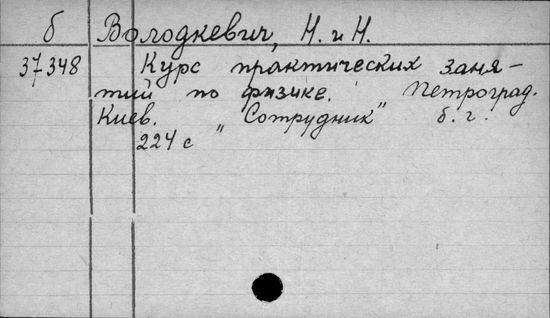 б Володкевич, Н. и Н.
37348 Курс практических заня-
тий по физике. Петроград.
Киев. "Сотрудник" б. г.
224 с